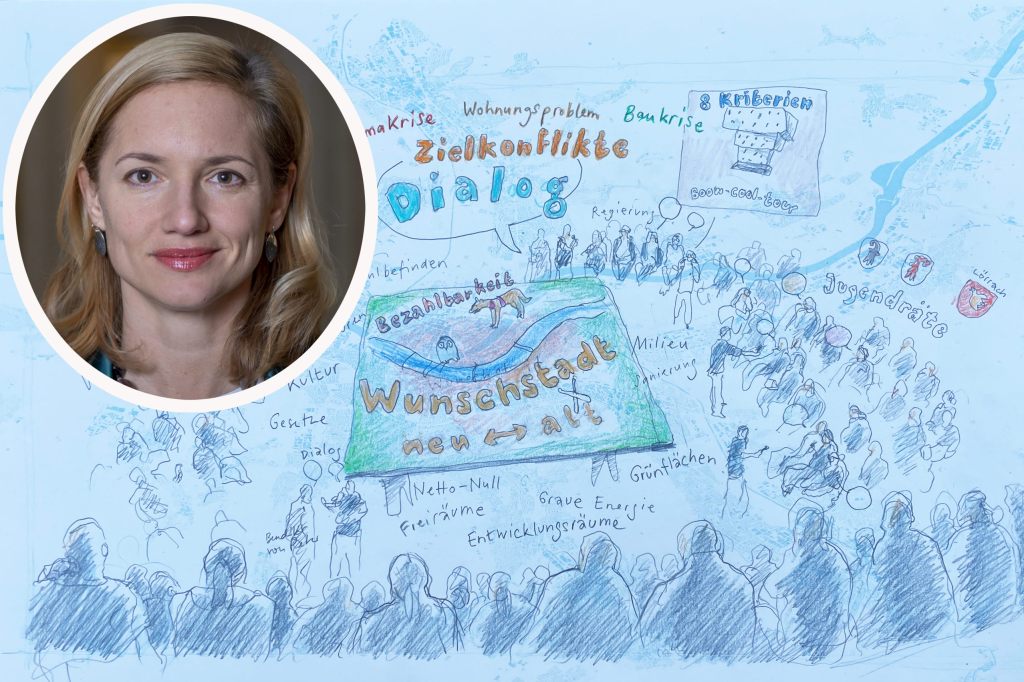 maKrise
Wohnungsproblem
Baukrise
8 Kriterien
Zielkonflikte
Dialog
Boom-cool-tour
Regierung
lbefinden
Bezahlbarkeit
Jugendräte
Lörrach
Milieu
sanierung
Kultur
Wunschstadt
neu ↔ alt
Gesetze
Dialog
Grünflächen
Netto-Null
Graue Energie
Freiräume
Entwicklungsräume